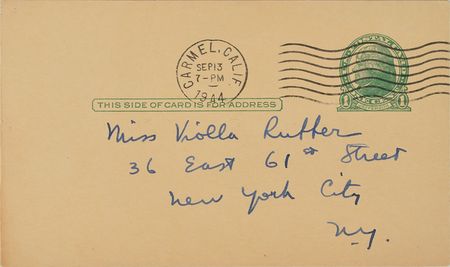 CARMEL, CALIF.
SEP 13
7-PM
1944
THIS SIDE OF CARD IS FOR ADDRESS
Miss Violla Rutter
36 East 61st Street
New York City
N.Y.